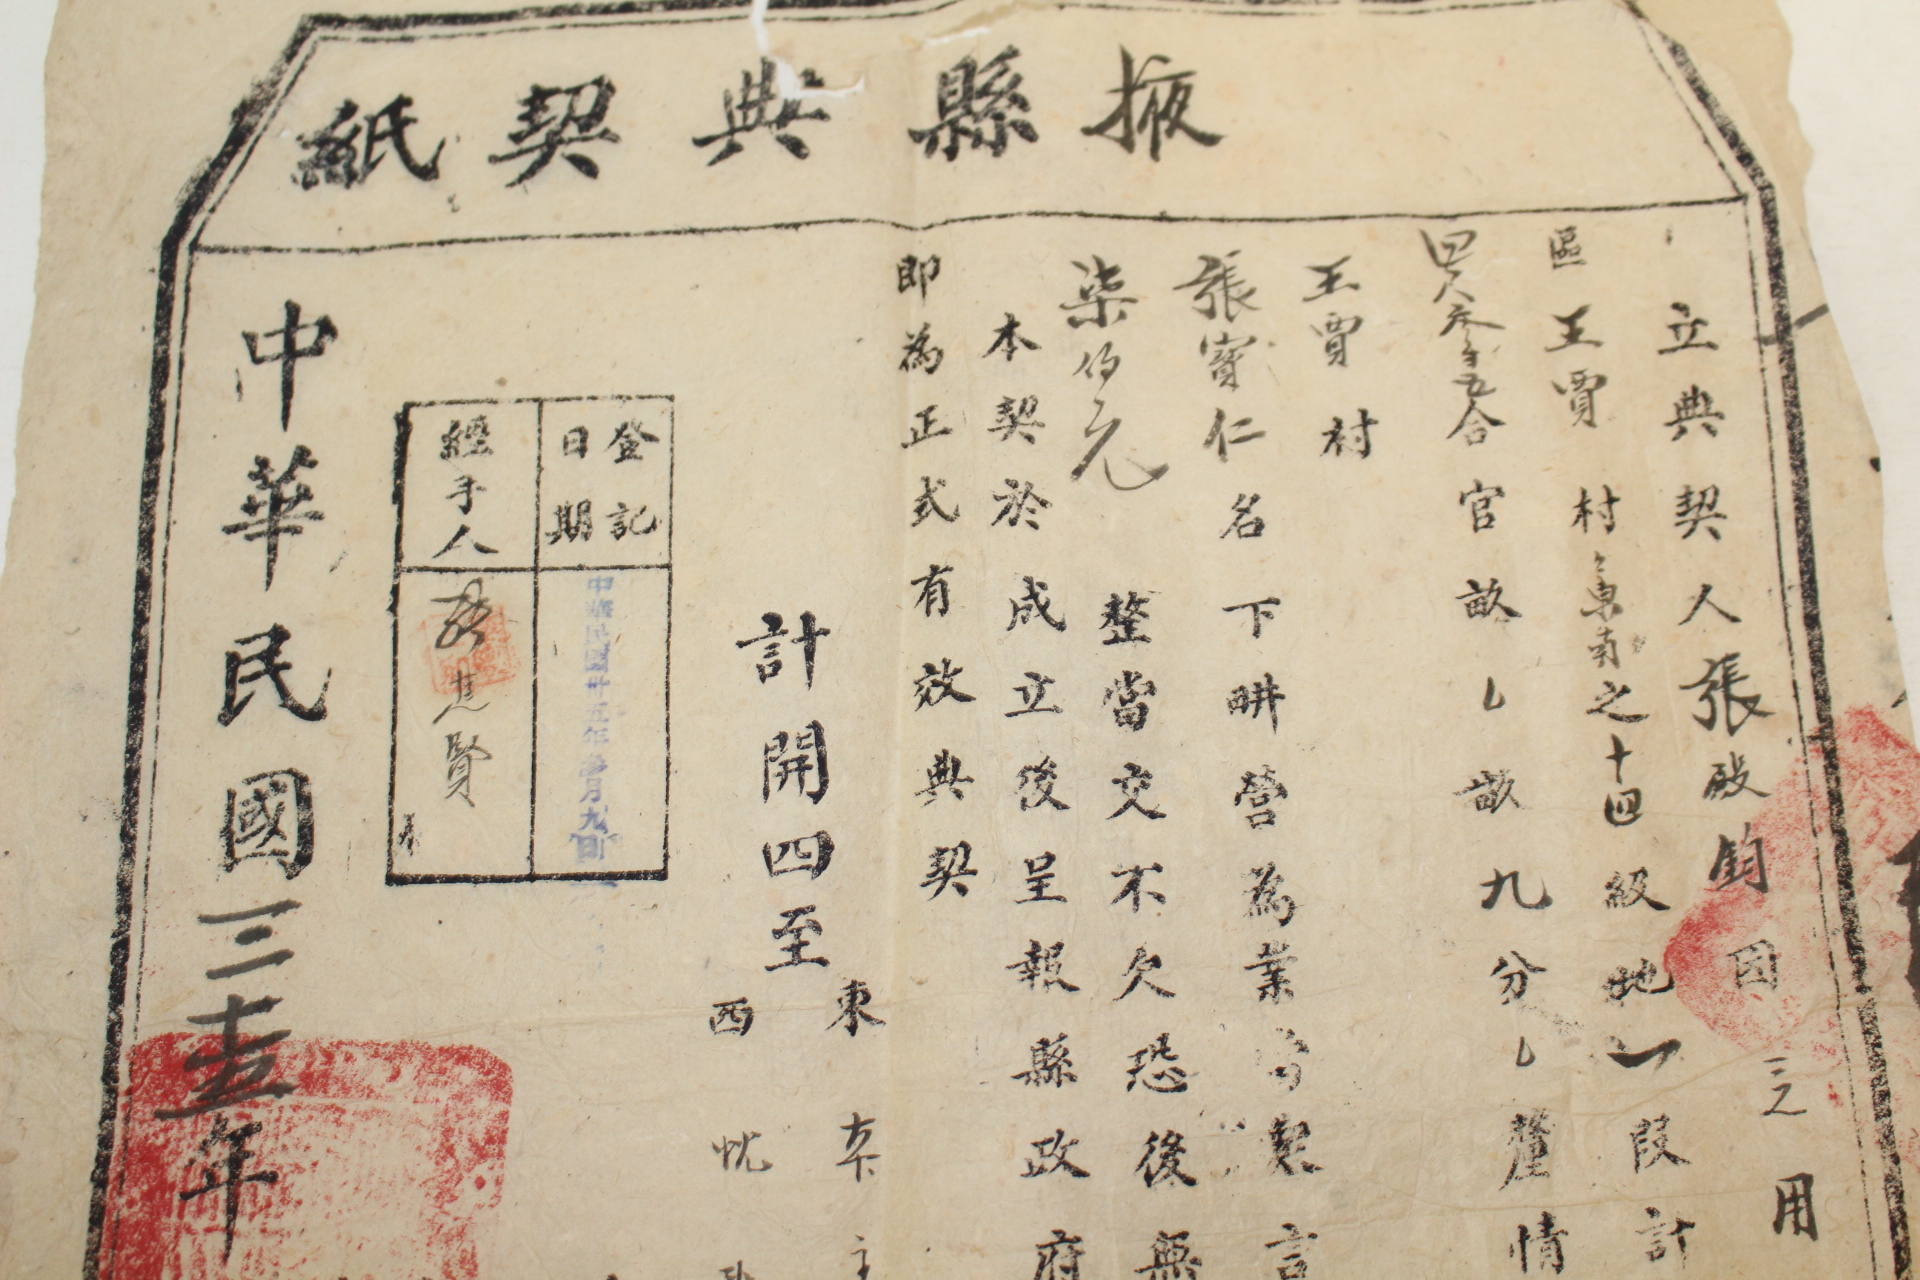 掖縣典契紙
立典契人張殿鈞因三之用
區王賈村東南之十四級地一段計
合官畝畝九分厘情
王賈村
張寶仁名下畊營為業 契言
柒佰元整當交不欠恐後無
本契於成立後呈報縣政府
即為正式有效典契
計開四至
東 本主
西 忱
登記日期
中華民國卅五年 月九日
經手人
賢
中華民國三十五年